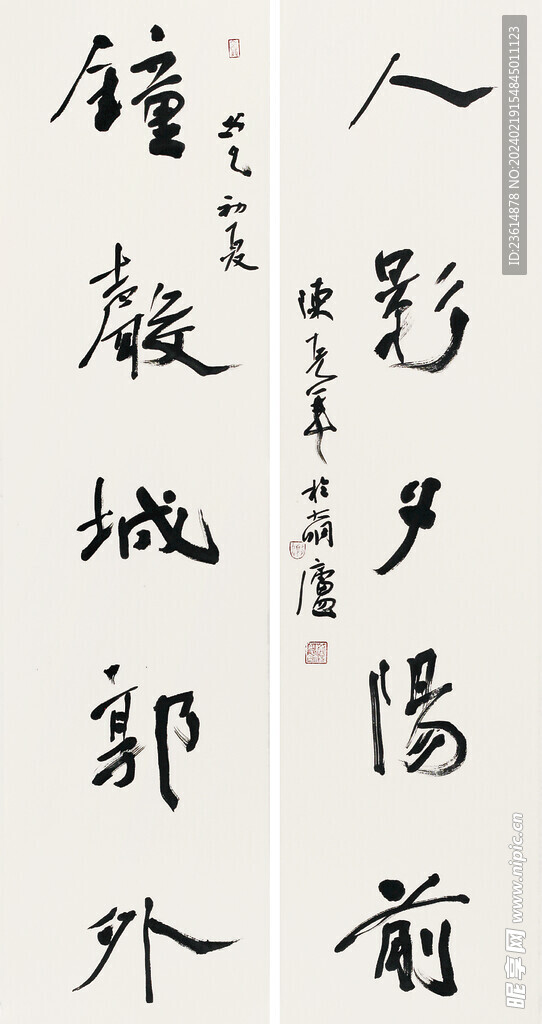 鐘聲城郭外
初夏
人影夕陽前
陳克年於萌廬
ID:23614878 NO:20240219154845011123
昵享网 www.nipic.cn